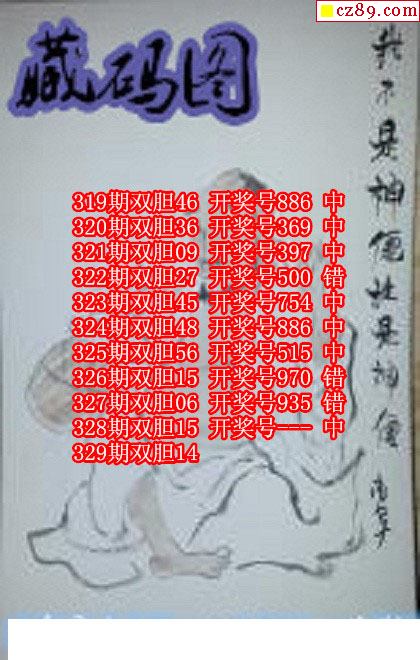 cz89.com
藏码图
319期双胆46 开奖号886 中
320期双胆36 开奖号369 中
321期双胆09 开奖号397 中
322期双胆27 开奖号500 错
323期双胆45 开奖号754 中
324期双胆48 开奖号886 中
325期双胆56 开奖号515 中
326期双胆15 开奖号970 错
327期双胆06 开奖号935 错
328期双胆15 开奖号--- 中
329期双胆14
我不是神仙
是神仙